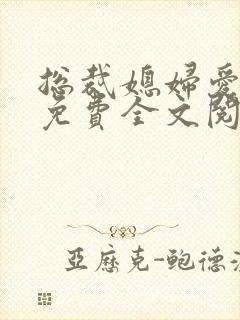 总裁媳婦愛
免費全文閱
亞歷克-鲍德